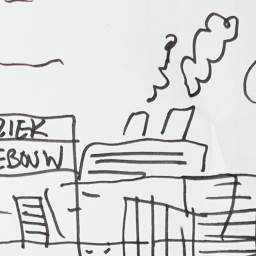 ZIEK
EBOUW